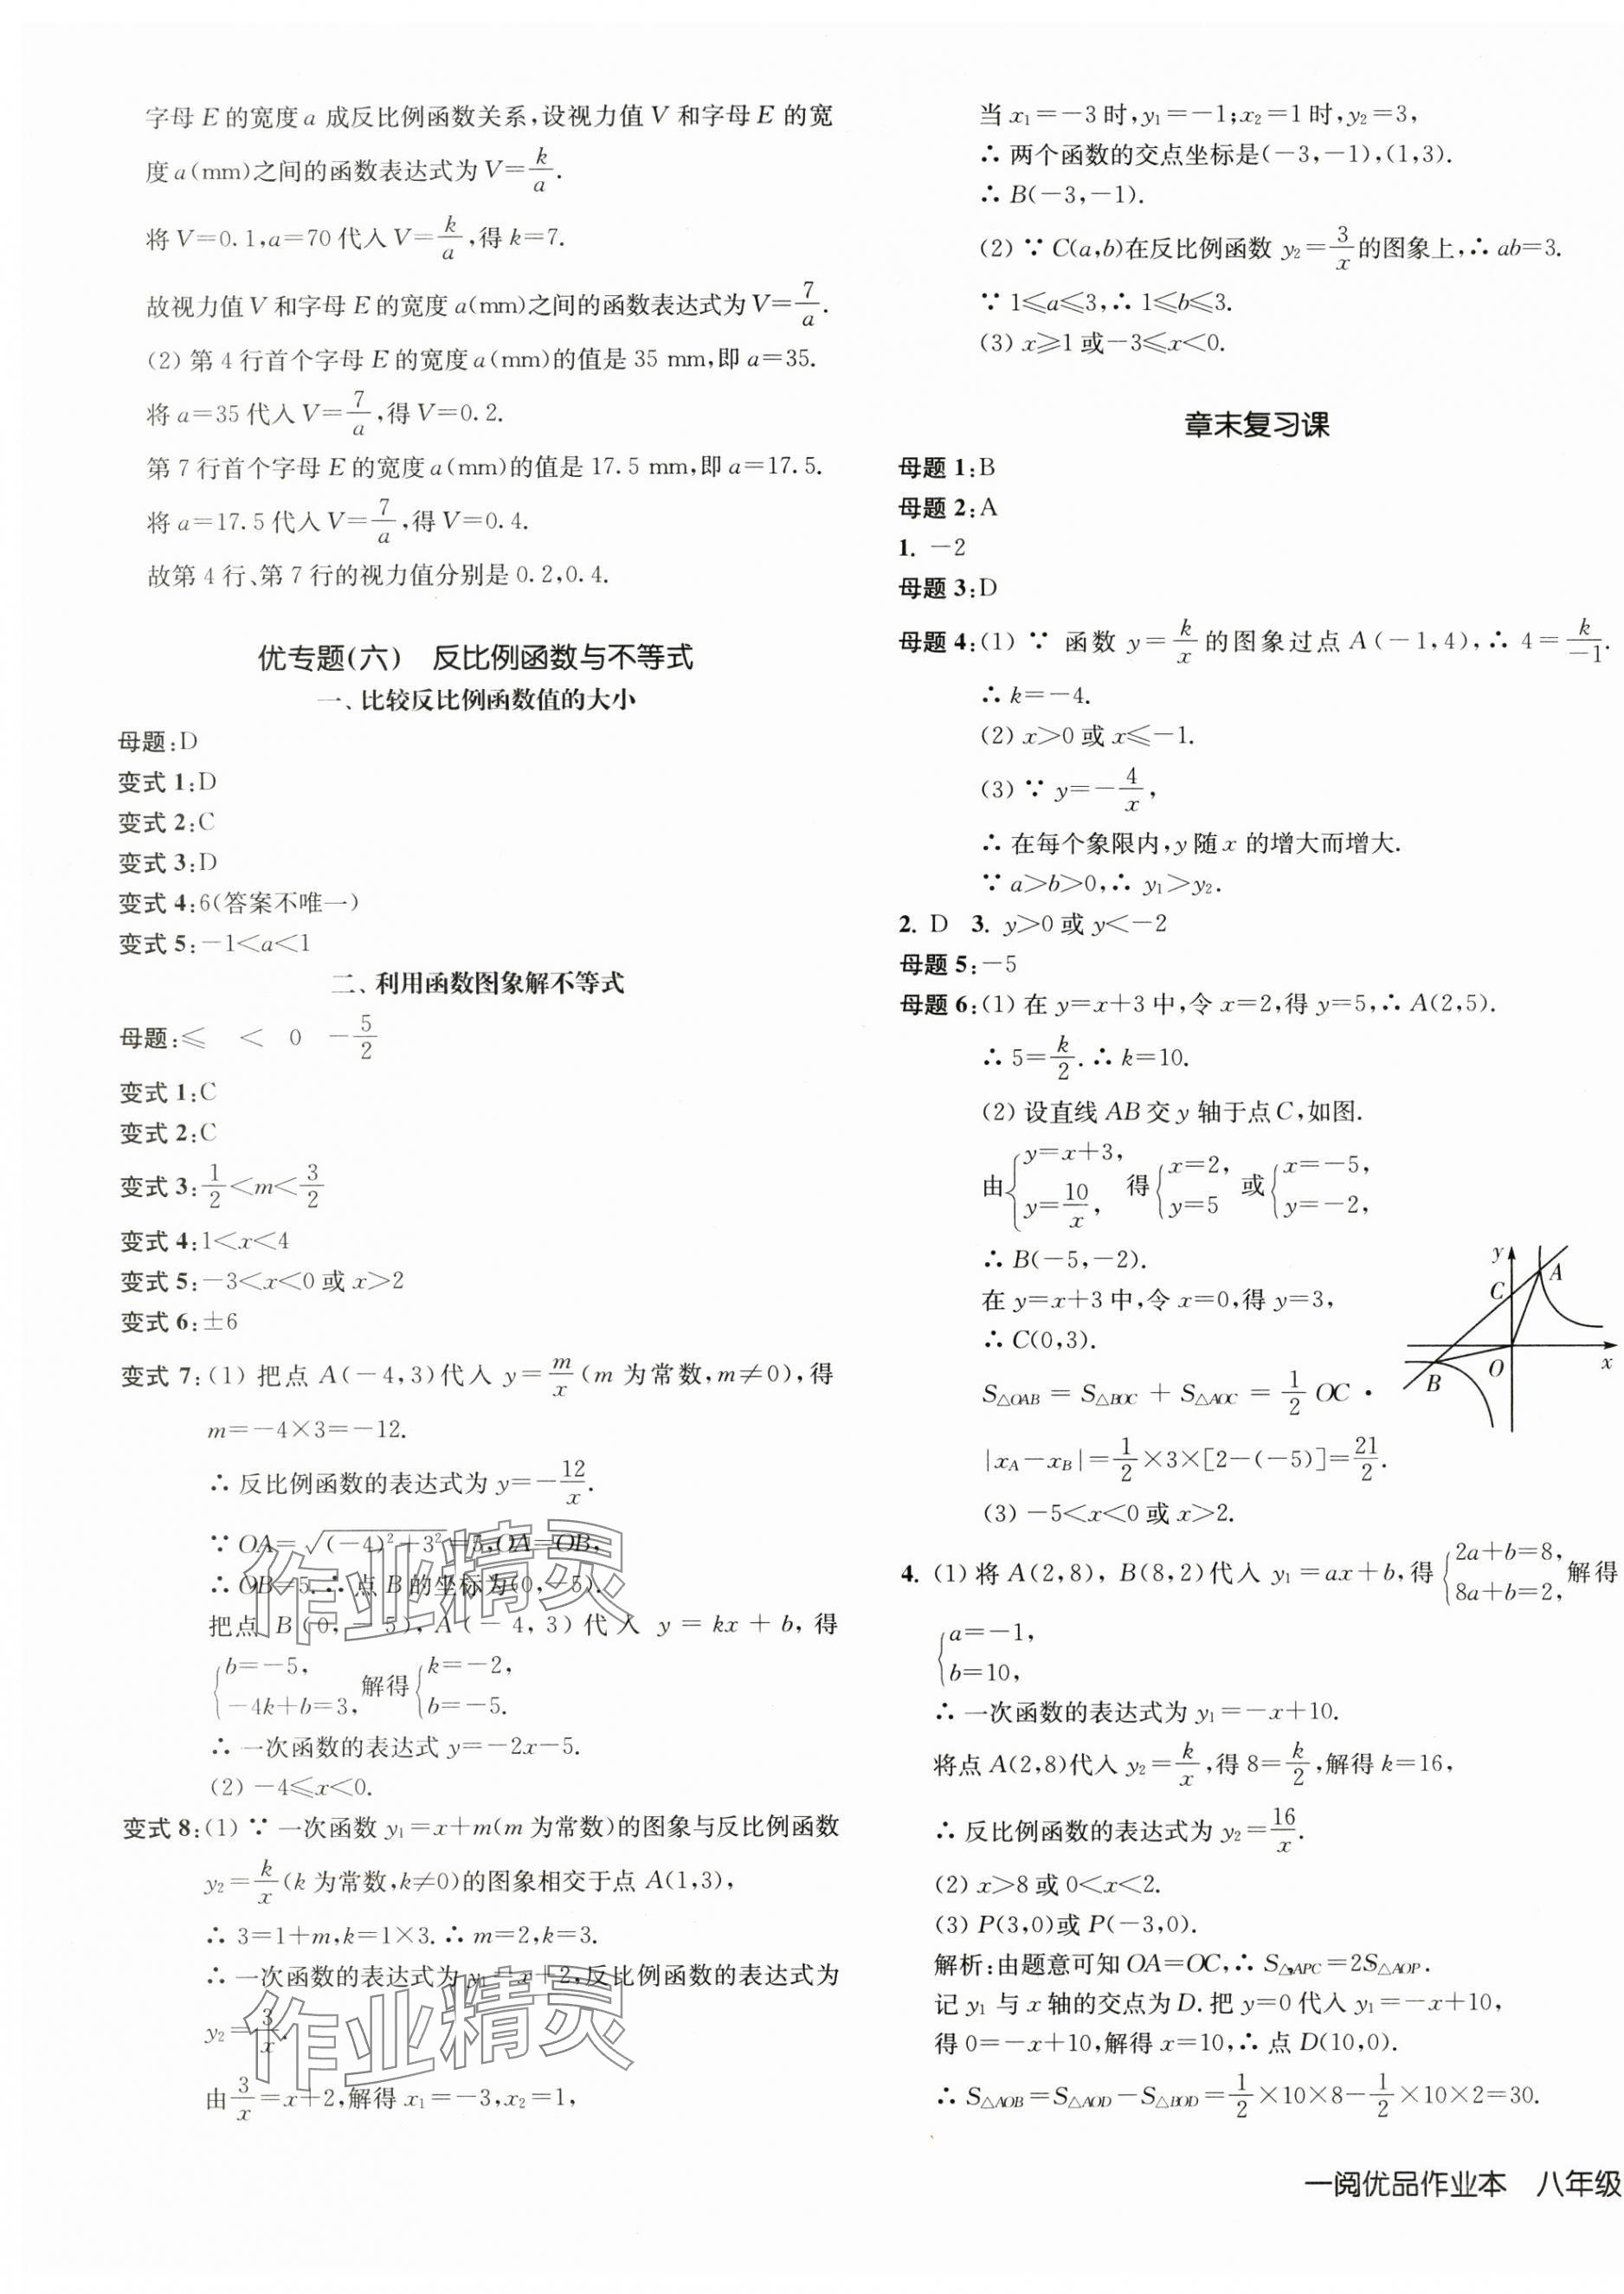 字母 E 的宽度 a 成反比例函数关系,设视力值 V 和字母 E 的宽
度 a(mm)之间的函数表达式为 V=k/a.
将 V=0.1,a=70 代入 V=k/a,得 k=7.
故视力值 V 和字母 E 的宽度 a(mm)之间的函数表达式为 V=7/a.
(2) 第 4 行首个字母 E 的宽度 a(mm)的值是 35 mm,即 a=35.
将 a=35 代入 V=7/a,得 V=0.2.
第 7 行首个字母 E 的宽度 a(mm)的值是 17.5 mm,即 a=17.5.
将 a=17.5 代入 V=7/a,得 V=0.4.
故第 4 行、第 7 行的视力值分别是 0.2,0.4.
优专题(六) 反比例函数与不等式
一、比较反比例函数值的大小
母题:D
变式 1:D
变式 2:C
变式 3:D
变式 4:6(答案不唯一)
变式 5:-1<a<1
二、利用函数图象解不等式
母题:≤ < 0 -5/2
变式 1:C
变式 2:C
变式 3:1/2<m<3/2
变式 4:1<x<4
变式 5:-3<x<0 或 x>2
变式 6:±6
变式 7:(1) 把点 A(-4,3)代入 y=m/x(m 为常数,m≠0),得
m=-4×3=-12.
∴ 反比例函数的表达式为 y=-12/x.
∵ OA=√((-4)²+3²)=5,OA=OB,
∴ OB=5.∴ 点 B 的坐标为(0,-5).
把点 B(0,-5),A(-4,3)代入 y=kx+b,得
{b=-5, -4k+b=3, 解得{k=-2, b=-5.
∴ 一次函数的表达式 y=-2x-5.
(2) -4≤x<0.
变式 8:(1) ∵ 一次函数 y₁=x+m(m 为常数)的图象与反比例函数
y₂=k/x(k 为常数,k≠0)的图象相交于点 A(1,3),
∴ 3=1+m,k=1×3.∴ m=2,k=3.
∴ 一次函数的表达式为 y₁=x+2,反比例函数的表达式为
y₂=3/x.
由3/x=x+2,解得 x₁=-3,x₂=1,
当 x₁=-3 时,y₁=-1;x₂=1 时,y₂=3,
∴ 两个函数的交点坐标是(-3,-1),(1,3).
∴ B(-3,-1).
(2) ∵ C(a,b)在反比例函数 y₂=3/x的图象上,∴ ab=3.
∵ 1≤a≤3,∴ 1≤b≤3.
(3) x≥1 或-3≤x<0.
章末复习课
母题 1:B
母题 2:A
1. -2
母题 3:D
母题 4:(1) ∵ 函数 y=k/x 的图象过点 A(-1,4),∴ 4=k/-1.
∴ k=-4.
(2) x>0 或 x≤-1.
(3) ∵ y=-4/x,
∴ 在每个象限内,y 随 x 的增大而增大.
∵ a>b>0,∴ y₁>y₂.
2. D 3. y>0 或 y<-2
母题 5:-5
母题 6:(1) 在 y=x+3 中,令 x=2,得 y=5,∴ A(2,5).
∴ 5=k/2.∴ k=10.
(2) 设直线 AB 交 y 轴于点 C,如图.
由{y=x+3, y=10/x, 得{x=2, y=5 或{x=-5, y=-2,
∴ B(-5,-2).
在 y=x+3 中,令 x=0,得 y=3,
∴ C(0,3).
S△OAB=S△BOC+S△AOC=1/2 OC·
|xA-xB|=1/2×3×[2-(-5)]=21/2.
y
A
C
O
x
B
(3) -5<x<0 或 x>2.
4. (1) 将 A(2,8), B(8,2)代入 y₁=ax+b,得{2a+b=8, 8a+b=2, 解得
{a=-1, b=10,
∴ 一次函数的表达式为 y₁=-x+10.
将点 A(2,8)代入 y₂=k/x,得 8=k/2,解得 k=16,
∴ 反比例函数的表达式为 y₂=16/x.
(2) x>8 或 0<x<2.
(3) P(3,0)或 P(-3,0).
解析:由题意可知 OA=OC,∴ S△APC=2S△AOP.
记 y₁ 与 x 轴的交点为 D.把 y=0 代入 y₁=-x+10,
得 0=-x+10,解得 x=10,∴ 点 D(10,0).
∴ S△AOB=S△AOD-S△BOD=1/2×10×8-1/2×10×2=30.
作业精灵
作业精灵
一阅优品作业本 八年级